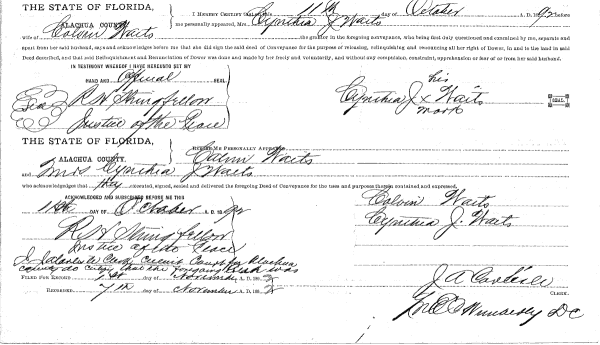 THE STATE OF FLORIDA,
ALACHUA COUNTY.
I HEREBY CERTIFY 11th October A. D. 1892 before
me personally appeared, Mrs. Cynthia J Waits
wife of Colvin Waits the grantor in the foregoing conveyance, who being first duly questioned and examined by me, separate and
apart from her said husband, says and acknowledges before me that she did sign the said deed of Conveyance for the purpose of releasing, relinquishing and renouncing all her right of Dower, in and to the land in said
Deed described, and that said Relinquishment and Renunciation of Dower was made by her freely and voluntarily, and without any compulsion, constraint, apprehension or fear of or from her said husband.
IN TESTIMONY WHEREOF I HAVE HEREUNTO SET MY
HAND AND Official SEAL
Seal
R H Stringfellow
Justice of the Peace
his
Cynthia J x Waits
mark
SEAL.
THE STATE OF FLORIDA,
ALACHUA COUNTY.
BEFORE ME PERSONALLY APPEARED Calvin Waits
and Mrs Cynthia J Waits
who acknowledges that they executed, signed, sealed and delivered the foregoing Deed of Conveyance for the uses and purposes therein contained and expressed.
ACKNOWLEDGED AND SUBSCRIBED BEFORE ME THIS
11th DAY OF October A. D. 1892
Colvin Waits
Cynthia J. Waits
R H Stringfellow
Justice of the Peace
Clerk Circuit Court for Alachua
do that the foregoing was
FILED FOR RECORD day of November A. D. 1892
RECORDED 7th day of November A. D. 1892
J A Carlisle
CLERK.
Wimberly D C